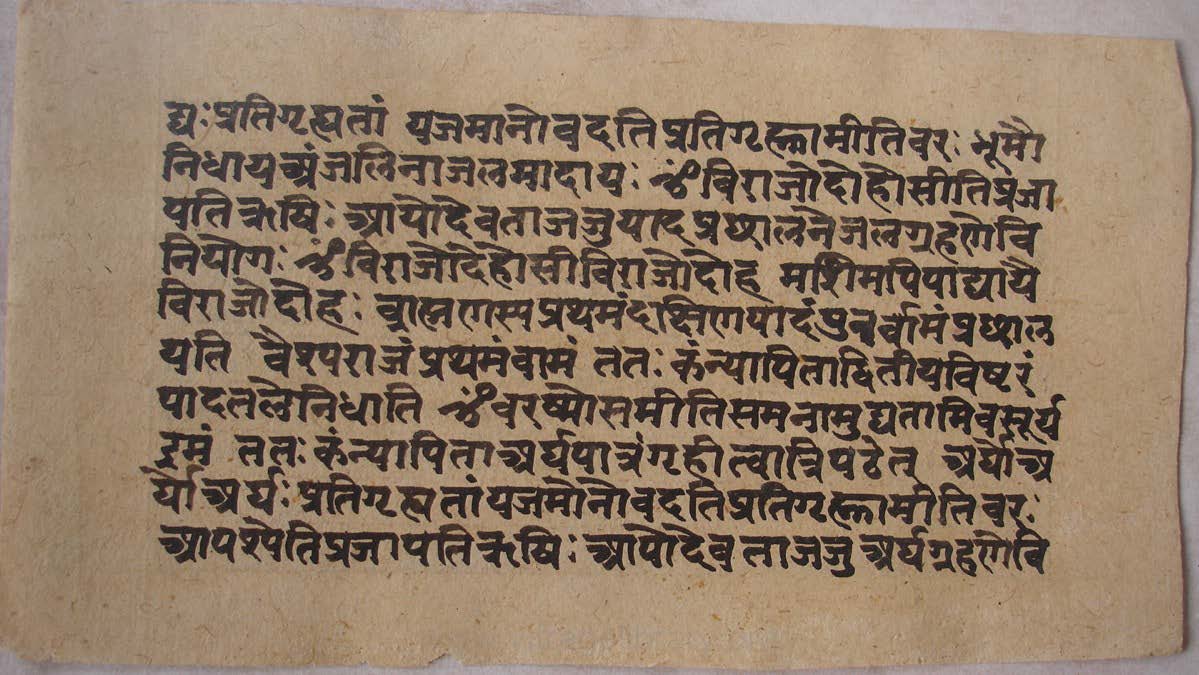 द्यः प्रतिगृह्यतां यजमानो वदति प्रतिगृह्णामीति वरः भूमौ
निधाय अंजलिनाजलमादायः ॐ विराजोदोहोसीतिप्रजा
पतिऋषिः आपोदेवताजजुपादप्रक्षालनेजलग्रहणेवि
नियोगः ॐ विराजोदेहोसीविराजोदोह मशिमपिपाद्यायै
विराजोदोहः ब्राह्मणस्पप्रथमंदक्षिणपादंपुनर्वामंप्रक्षाल
यति वैश्पराजंप्रथमंवामं ततः कंन्यापिताद्वितीयविष्टरं
पादतलेनिधाति ॐ वरष्मोसमीतिसमनामुद्यतामिवसूर्य
इमं ततः कंन्यापिताअर्घपात्रंगृहीत्वात्रिपठेत् अर्घोअ
र्घोअर्घः प्रतिगृह्यतांयजमोनोवदतिप्रतिगृह्णामीतिवरः
आपश्पेतिप्रजापतिऋषिः आपोदेवताजजुअर्घग्रहणेवि